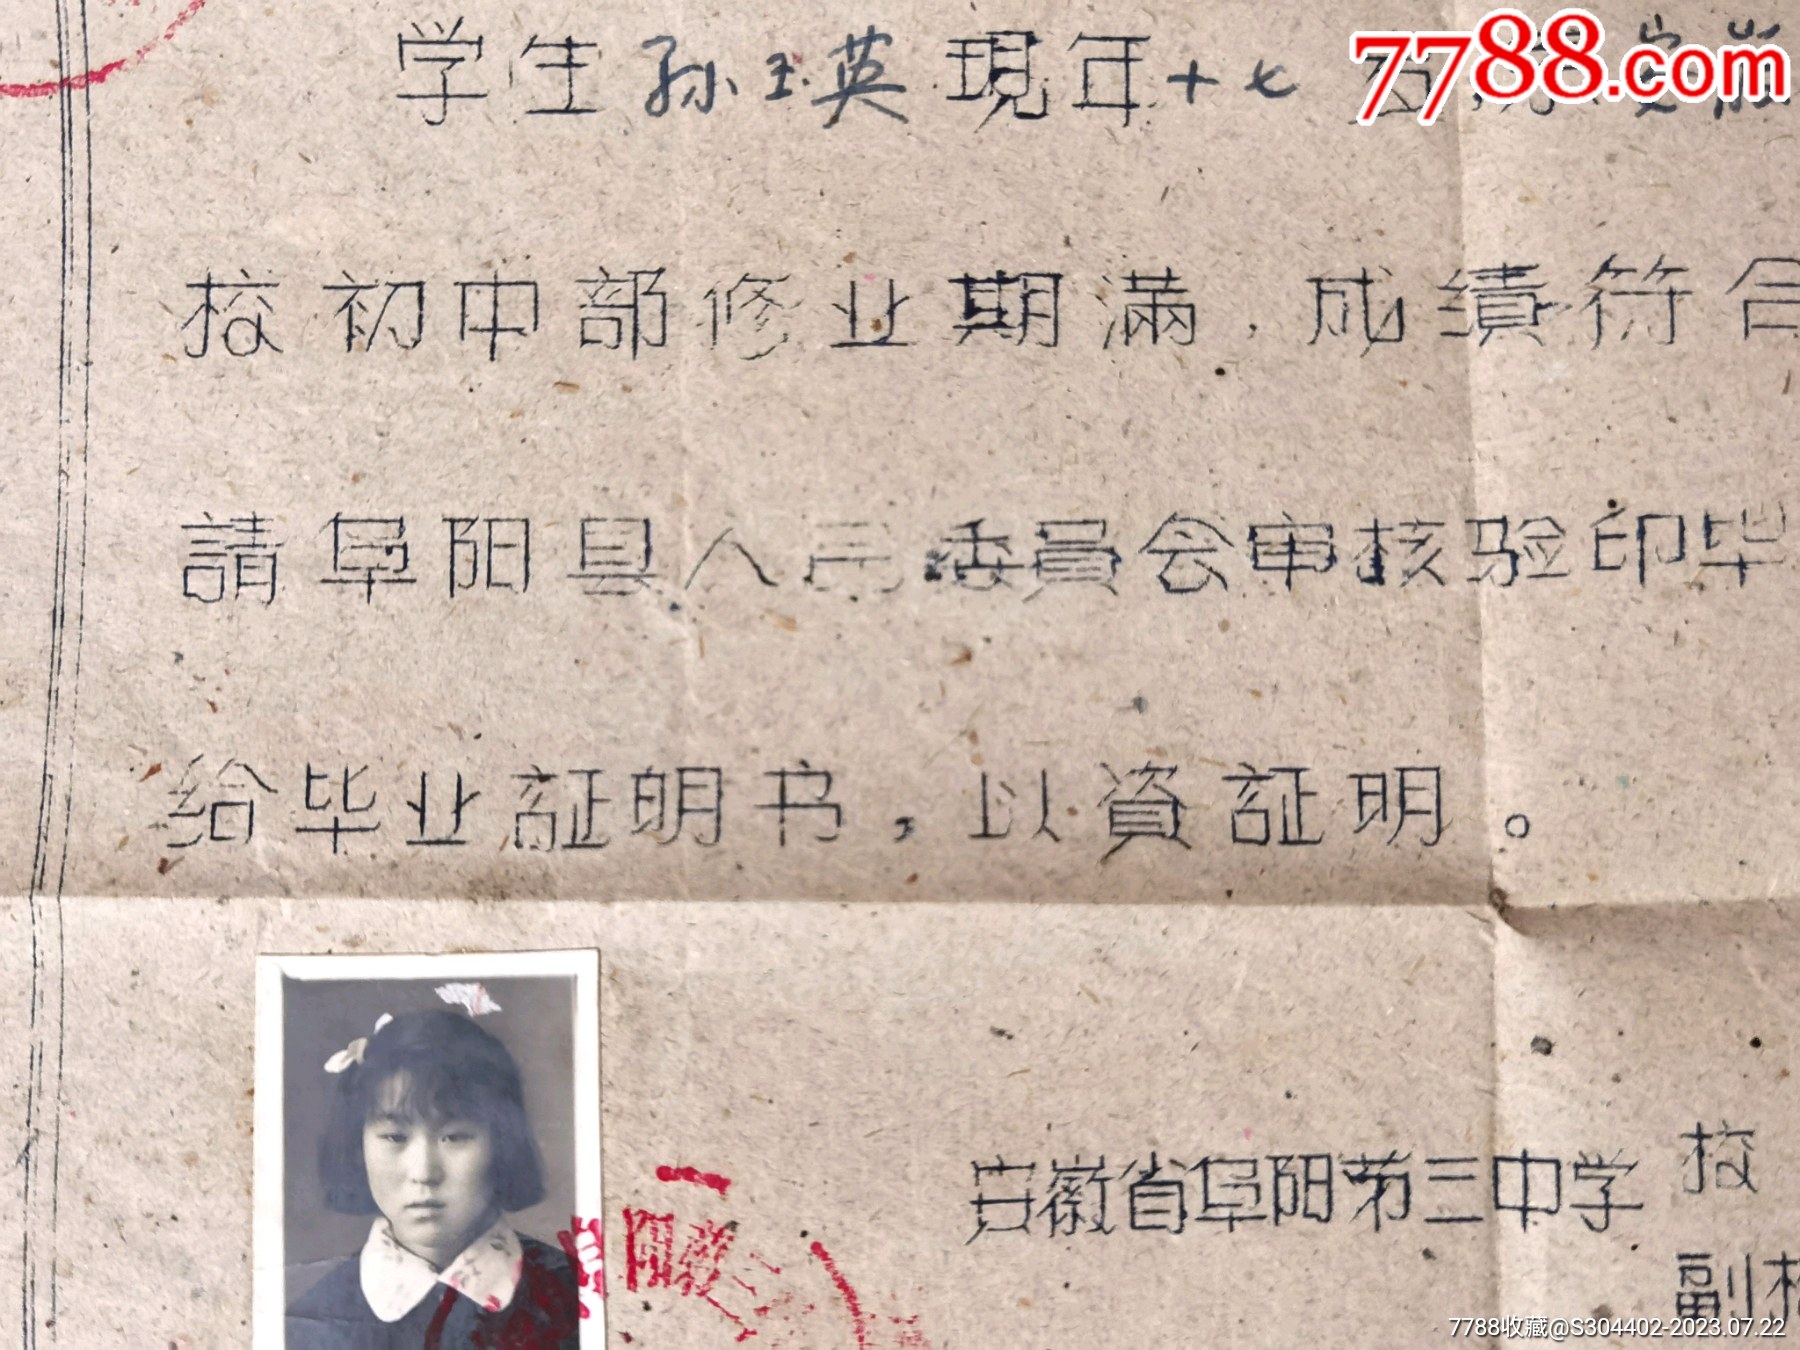 7788.com
学生孙玉英現年十七
校初中部修业期滿，成績符合
請阜阳县人民委員会审核验印毕
给毕业証明书，以資証明。
安徽省阜阳第三中学
校
副校
7788收藏@S304402-2023.07.22